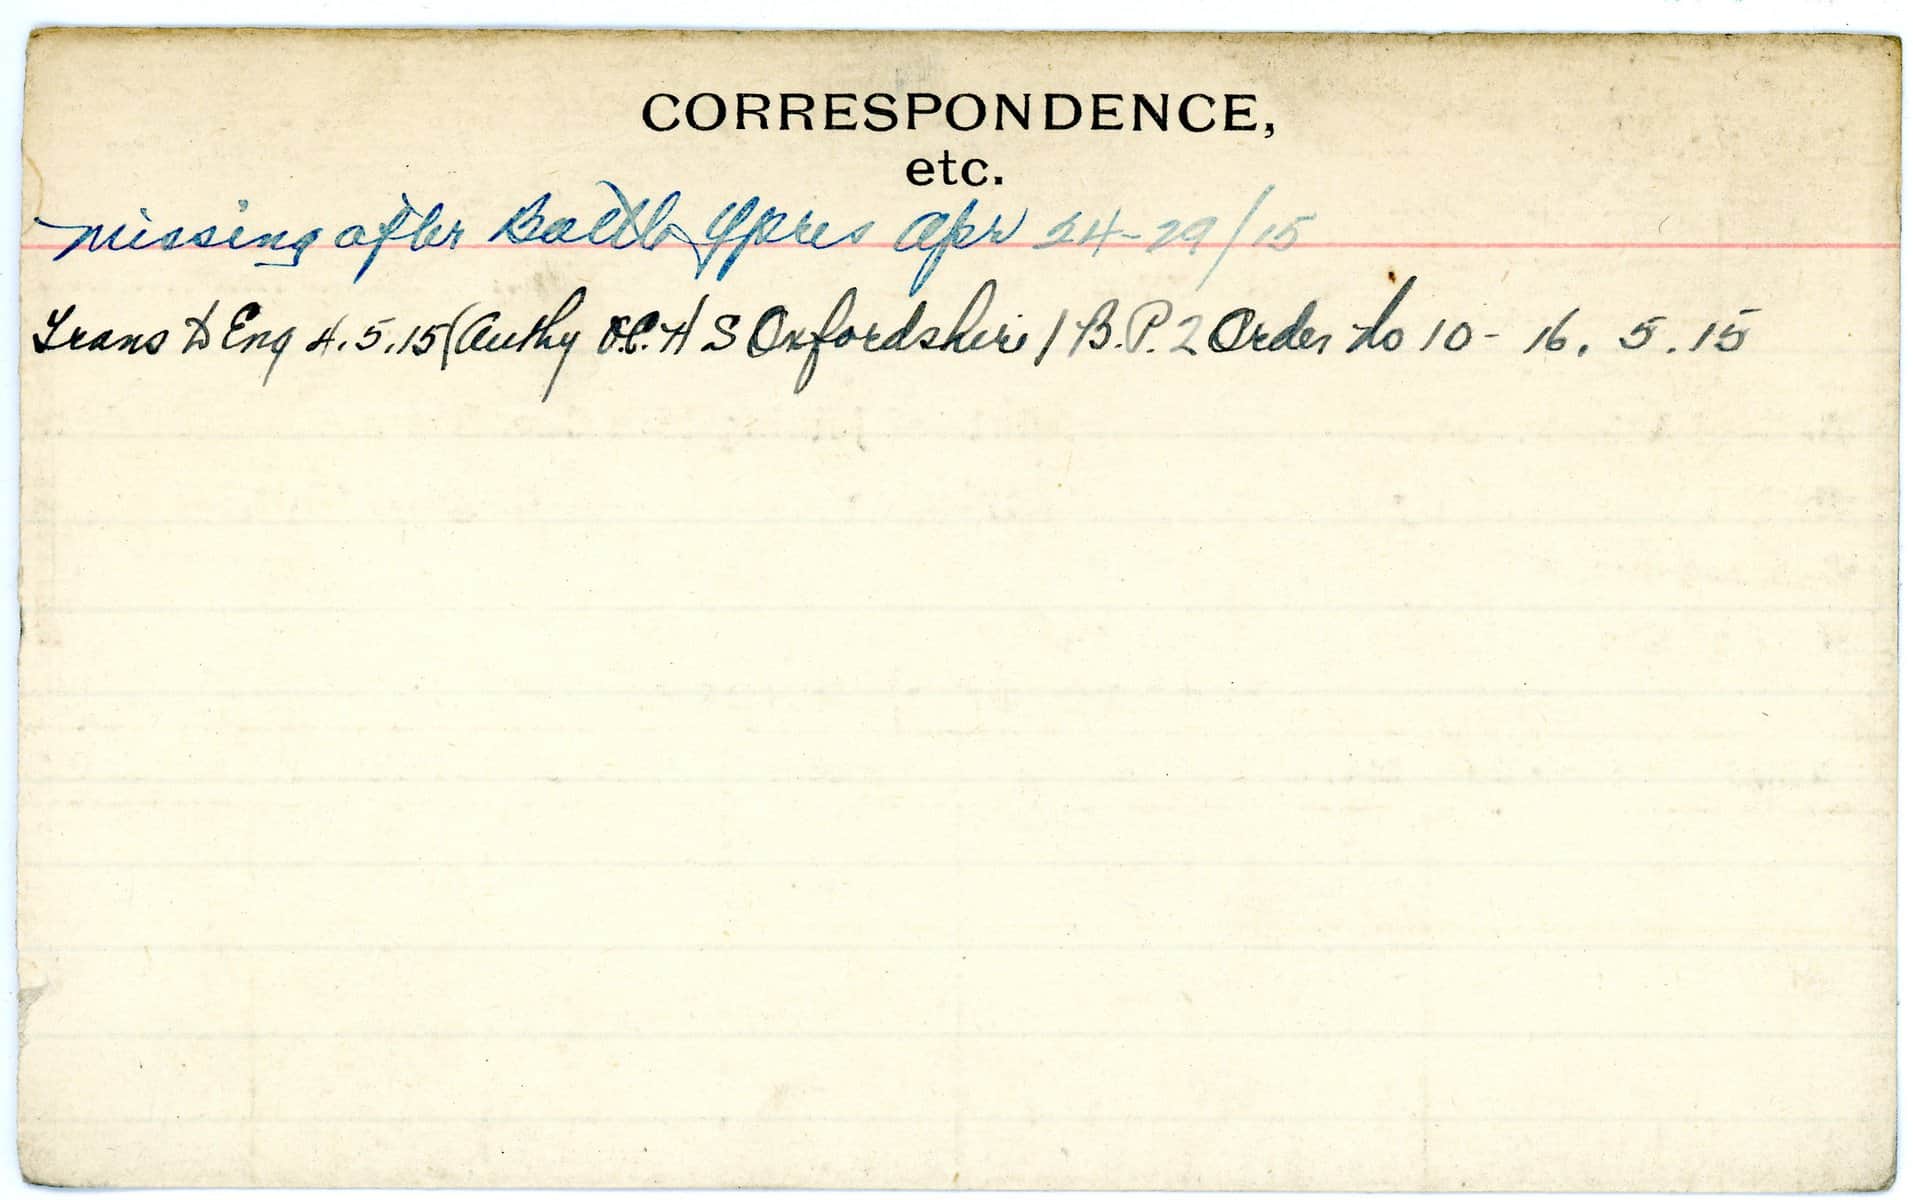 CORRESPONDENCE,
etc.
Missing after Battle Ypres Apr 24-29/15
Trans to Eng 4.5.15 (Authy O.C. H S Oxfordshire / B.P. 2 Order No 10 - 16. 5. 15